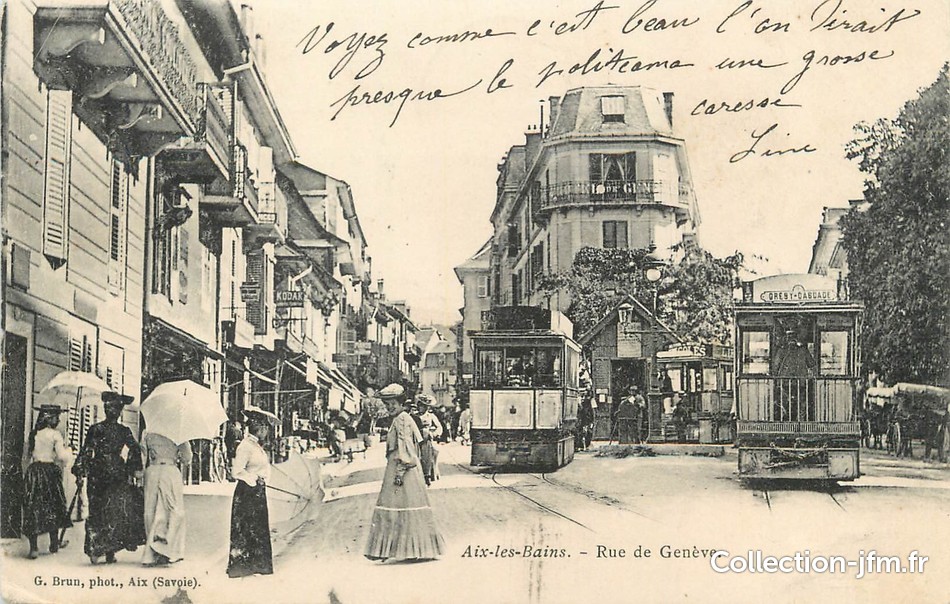 Voyez comme c'est beau l'on dirait
presque le politeama une grosse
caresse
Line
KODAK
GRESY-DARGADE
Aix-les-Bains. – Rue de Genève.
G. Brun, phot., Aix (Savoie).
Collection-jfm.fr